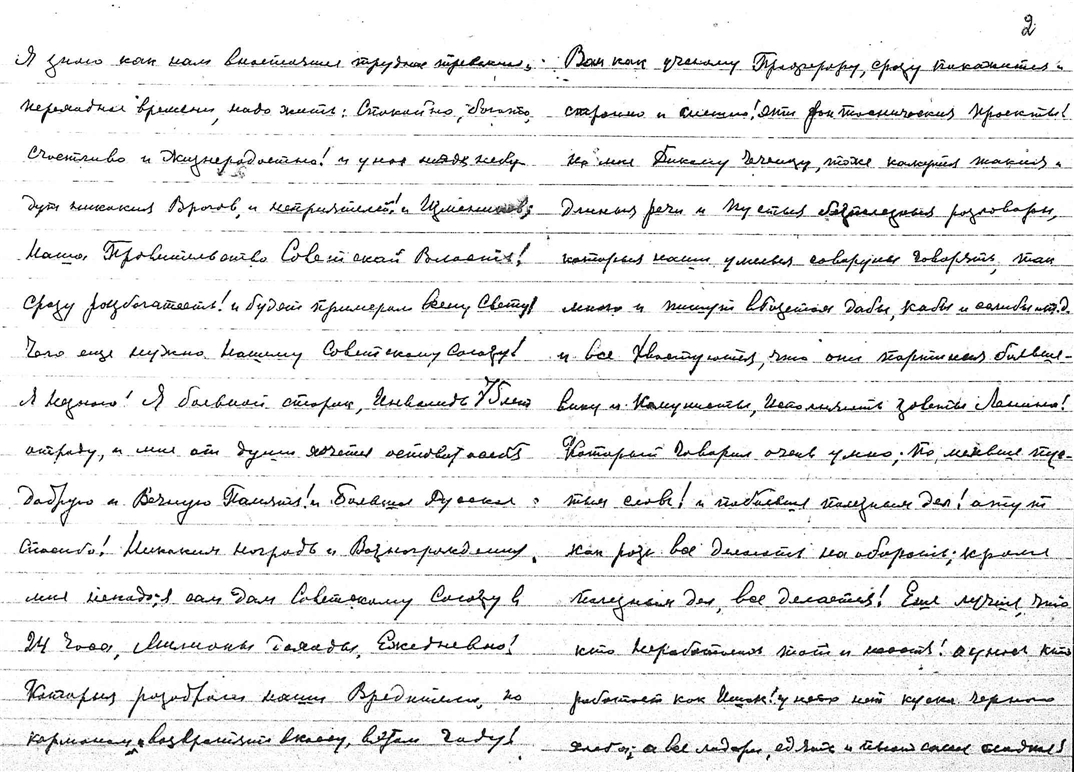 2
Я знаю как нам внастоящие трудное тревожное,
переходное время, надо жить: Спокойно, богато,
Счастливо и Жизнерадостно! и унас небу-
дут никаких Врагов, и неприятелей! и Изменников;
Наша Правительство Советской Власть!
сразу разбогатеет! и будет примером всему Свету!
Чего еще нужно нашему Советскому Союзу!
Я незнаю! Я больной старик, Инвалид 75 лет
отроду, и мне от души хочется оставит осебя
Добрую и Вечную Память! и Большая Русская
Спасибо! Никаких наградъ и Вознаграждения,
мне ненадо; я сам дам Советскому Союзу в
24 Часа, Милионы Ежедневно!
Которыя разобрали наши Вредители, по
карманам, возвратят вкассу, вэтом Году!
Вам как ученому Прокурору, сразу покажится
странно и смешно! эти фантоснические проекты!
но мне Дикому Чеченцу, тоже кажутся такия
длинныя речи и пустыя безполезныя разговоры,
которыя наши умелыя говоруны Говорять, так
много и пишут вГазетах дабы, кабы и еслибы ит.д.
и все Хвастуются, что они партиная больше-
вики и Комунисты, Исполнять заветы Ленина!
Который Говорил очень умно; По, меньше пус-
тых слов! и побольше полезных дел! а тут
как разъ все Делаеть на оборотъ; кроми
полезных дел, все делается! Еще лучше, что
кто неработает тот и поеть! а унас кто
работает как Ишак! у него нет куска черного
хлеба; а все лодари, едять и пьют самые сладкие!